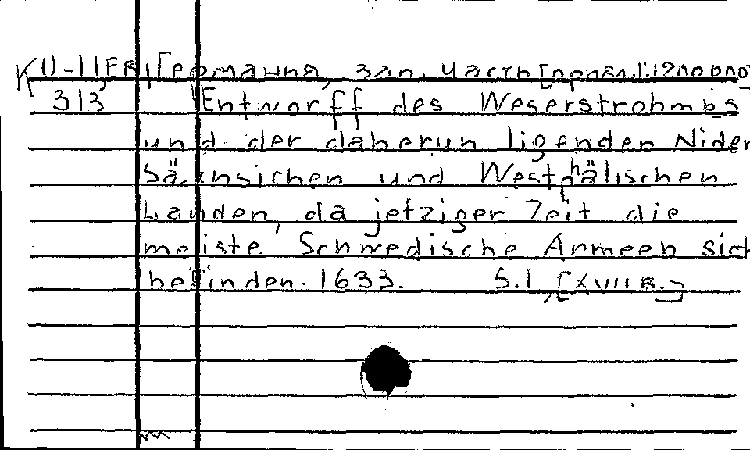 К 0-II,ЕВ, Германия, зап. часть
313 Entworff des Weserstrohmbs
und der daherun ligenden Nider
Sächsichen und Westphälischen
Landen, da jetziger Zeit die
meiste Schwedische Armeen sich
befinden. 1633. S.l., [XVII в.]